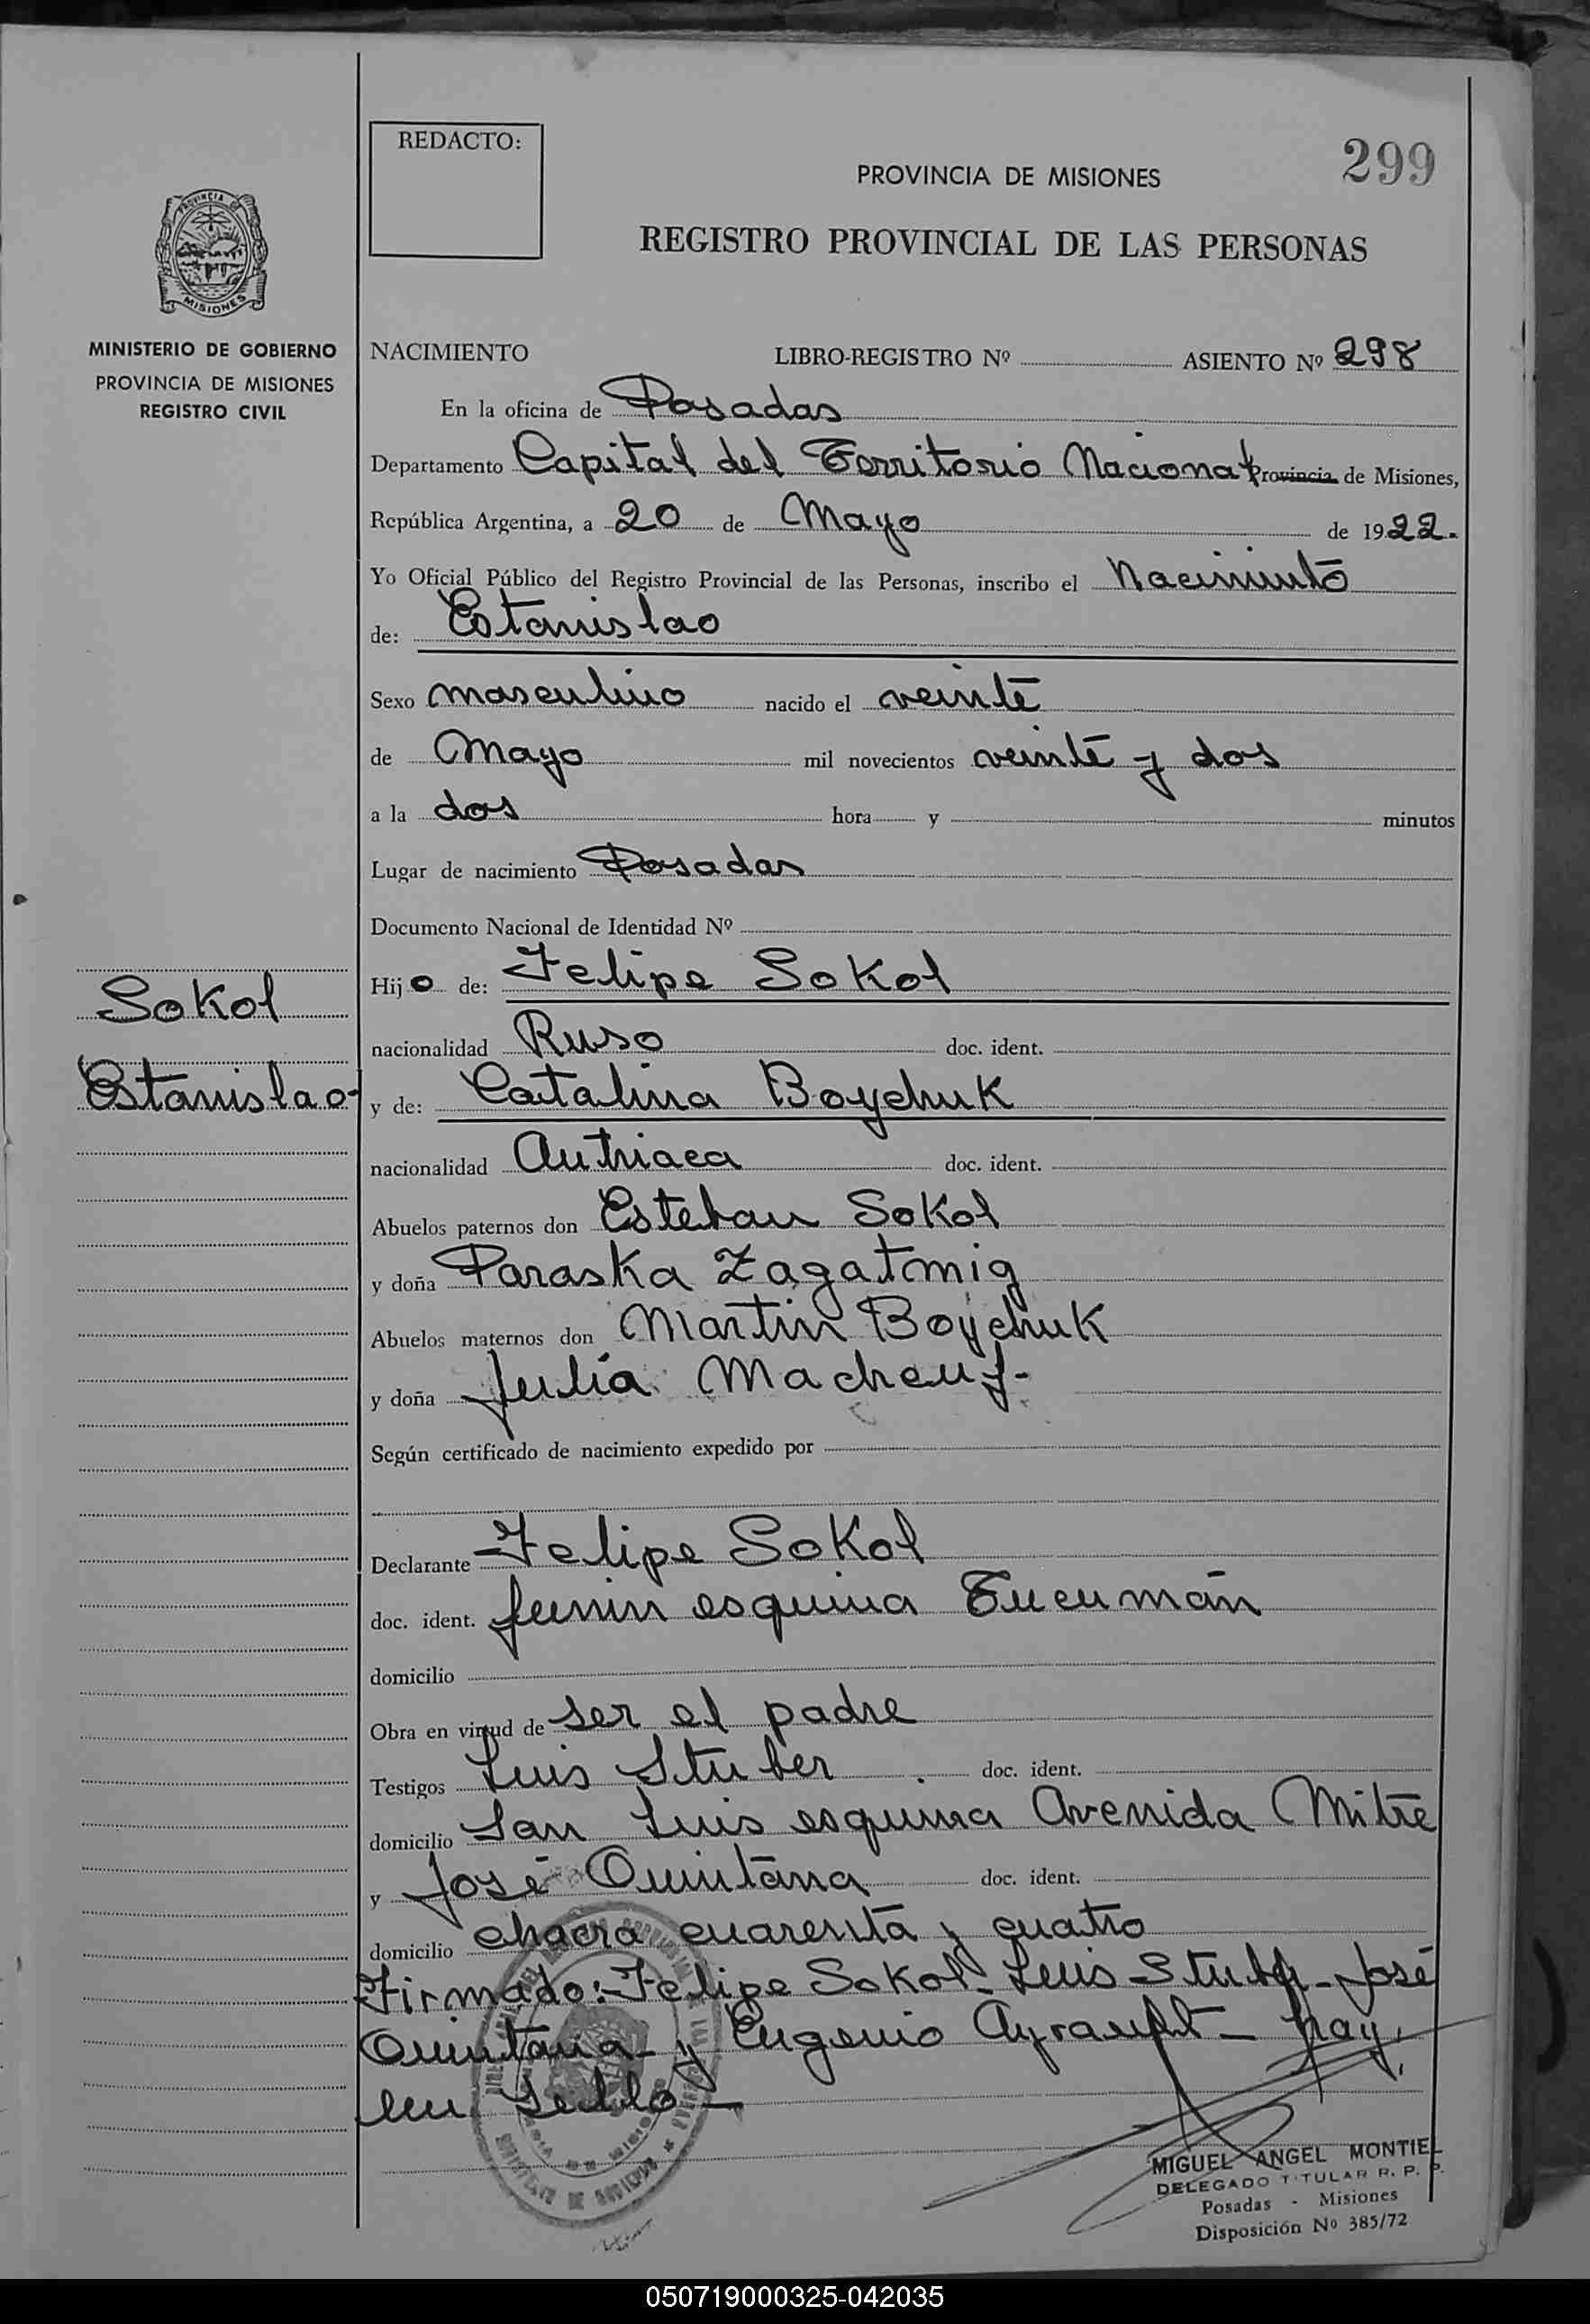 REDACTO:
299
PROVINCIA DE MISIONES
REGISTRO PROVINCIAL DE LAS PERSONAS
PROVINCIA DE
MISIONES
MINISTERIO DE GOBIERNO
PROVINCIA DE MISIONES
REGISTRO CIVIL
NACIMIENTO LIBRO-REGISTRO Nº ASIENTO Nº 298
En la oficina de Posadas
Departamento Capital del Territorio Nacional Provincia de Misiones,
República Argentina, a 20 de Mayo de 1922.
Yo Oficial Público del Registro Provincial de las Personas, inscribo el Nacimiento
de: Estanislao
Sexo masculino nacido el veinte
de Mayo mil novecientos veinte y dos
a la dos hora y minutos
Lugar de nacimiento Posadas
Documento Nacional de Identidad Nº
Hijo de: Felipe Sokol
Sokol
nacionalidad Ruso doc. ident.
Estanislao-
y de: Catalina Boychuk
nacionalidad Autriaca doc. ident.
Abuelos paternos don Esteban Sokol
y doña Paraska Zagatmig
Abuelos maternos don Martin Boychuk
y doña Julia Macheuf-
Según certificado de nacimiento expedido por
Declarante Felipe Sokol
doc. ident. Junin esquina Tucumán
domicilio
Obra en virtud de ser el padre
Testigos Luis Stuber doc. ident.
domicilio San Luis esquina Avenida Mitre
y José Quintana doc. ident.
domicilio chacra cuarenta y cuatro
Firmado:-Felipe Sokol- Luis Stuber-José
Quintana- y Eugenio - hay
un Sello-
MIGUEL ANGEL MONTIEL
DELEGADO TITULAR R. P. P.
Posadas - Misiones
Disposición Nº 385/72
050719000325-042035